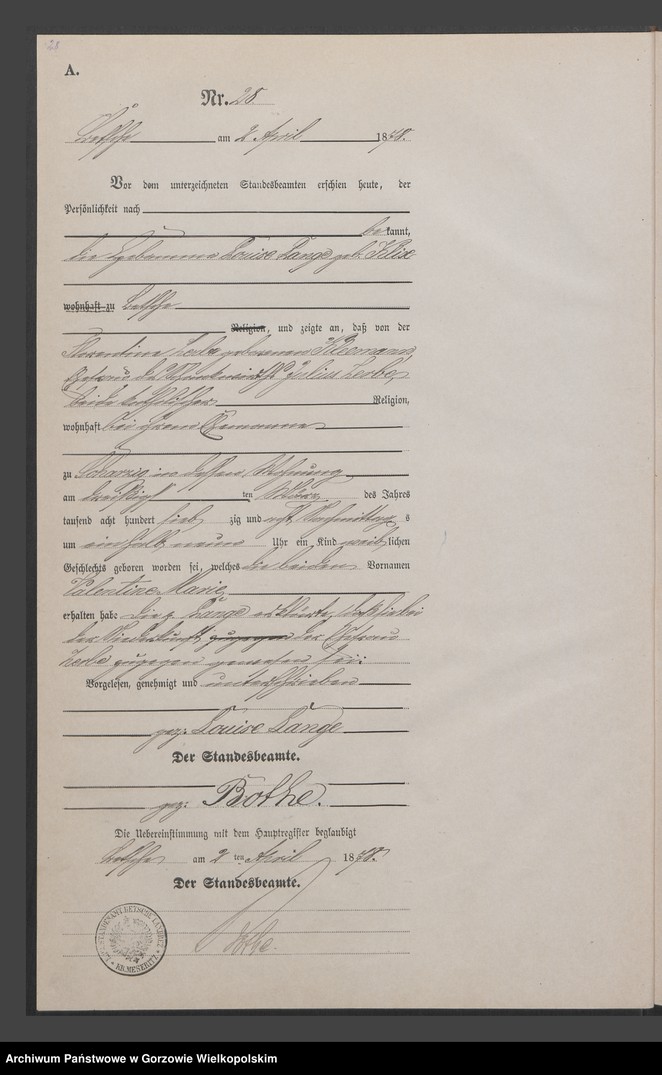 28
A.
Nr. 28
Betsche am 2 April 1878.
Vor dem unterzeichneten Standesbeamten erschien heute, der
Persönlichkeit nach
bekannt,
die Hebamme Louise Lange geb. Klix
wohnhaft zu Betsche
Religion, und zeigte an, daß von der
Florentine Zerbe geborenen
Ehefrau des Julius Zerbe,
beide katholischer Religion,
wohnhaft bei ihrem Ehemanne
zu Scharzig in dessen Wohnung
am dreißigsten ten März des Jahres
tausend acht hundert sieb zig und acht Nachmittags
um ein halb neun Uhr ein Kind weiblichen
Geschlechts geboren worden sei, welches die beiden Vornamen
Valentine Marie
erhalten habe Die p. Lange erklärte, daß sie bei
der Niederkunft zugegen der Ehefrau
Zerbe zugegen gewesen sei.
Vorgelesen, genehmigt und unterschrieben
gez: Louise Lange
Der Standesbeamte.
gez: Bothe.
Die Uebereinstimmung mit dem Hauptregister beglaubigt
Betsche am 2 ten April 1878.
Der Standesbeamte.
Bothe.
STANDESAMT BETSCHE LANDBEZ. * KR. MESERITZ *
Archiwum Państwowe w Gorzowie Wielkopolskim